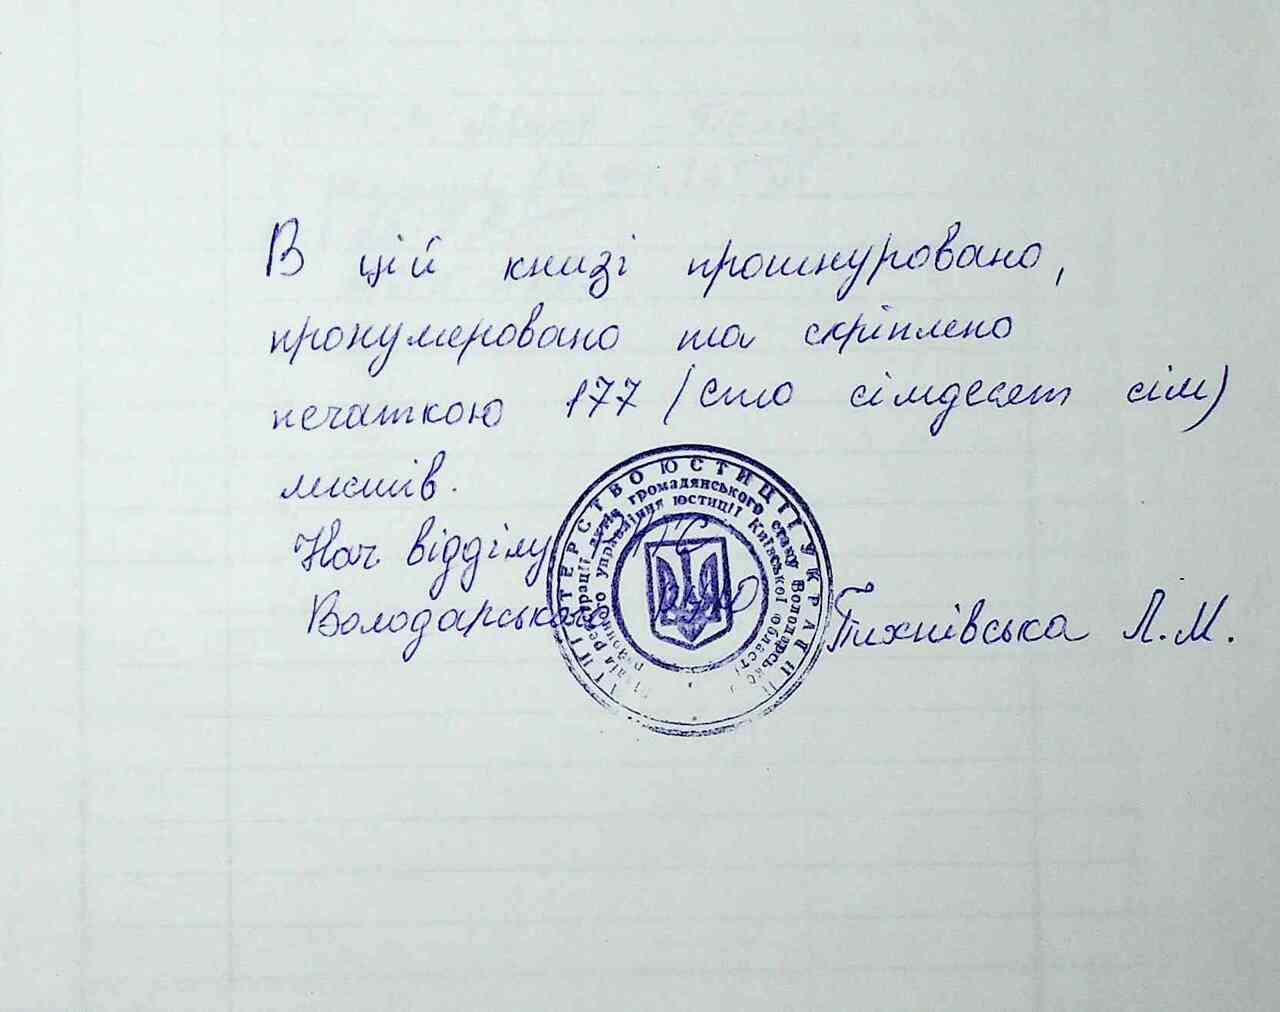 В цій книзі прошнуровано,
пронумеровано та скріплено
печаткою 177 (сто сімдесят сім)
листів.
Нач відділу
Володарського
Тихнівська Л.М.
МІНІСТЕРСТВО ЮСТИЦІЇ УКРАЇНИ
Відділ реєстрації актів громадянського стану Володарського
районного управління юстиції Київської області